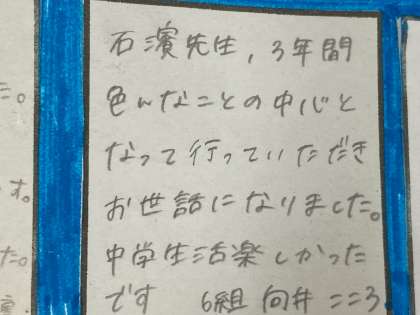 石濱先生,3年間
色んなことの中心と
なって行っていただき
お世話になりました。
中学生活楽しかった
です 6組 向井 こころ
す。
た。